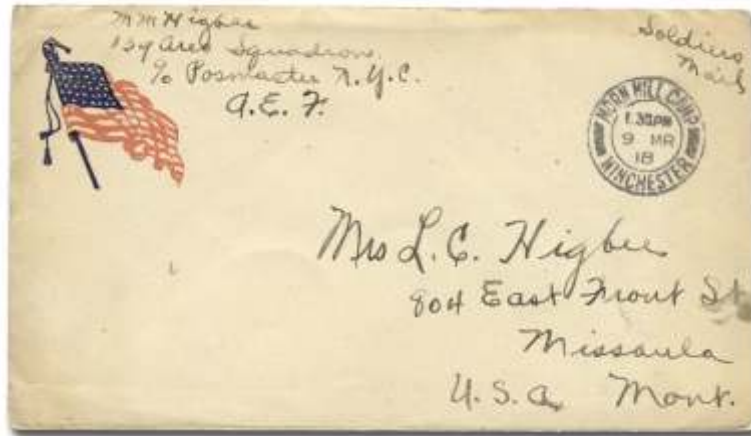 M M Higbee
137 Aero Squadron,
c/o Posmaster N.Y.C.
A.E.F.
Soldiers
Mail
MORN HILL CAMP
1.30PM
9 MR
18
WINCHESTER
Mrs L. C. Higbee
804 East Front St
Missoula
U.S.A. Mont.